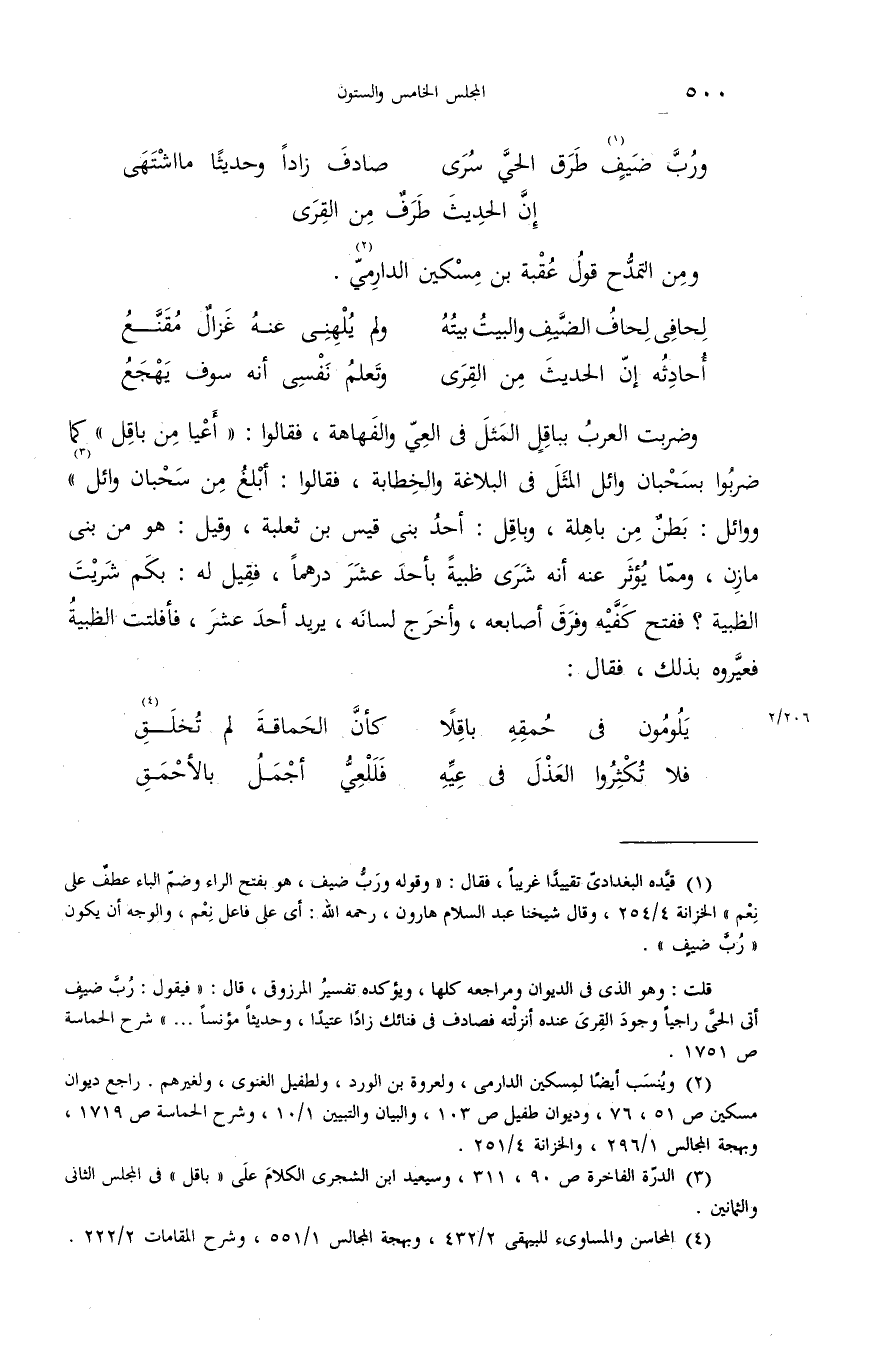 ٥٠٠ المجلس الخامس والستون
ورُبَّ ضَيَفٍ(١) طَرَق الحيَّ سُرَى صادفَ زاداً وحديثًا مااشْتَهَى
إنَّ الحدِيثَ طَرَفٌ مِن القِرَى
ومِن التمدُّح قولُ عُقْبة بن مِسْكين الدارِميّ(٢) .
لِحافِى لِحافُ الضَّيفِ والبيتُ بيتُهُ ولم يُلْهِنِى عنهُ غَزالٌ مُقَنَّعُ
أُحادِثُه إنّ الحديثَ مِن القِرَى وتَعلمُ نَفْسِى أنه سوف يَهْجَعُ
وضربت العربُ بباقِلٍ المَثلَ فى العِيّ والفَهاهة ، فقالوا : « أَعْيا مِن باقِل » كما
ضربُوا بسَحْبان وائل المثَلَ فى البلاغة والخِطابة ، فقالوا : أبْلغُ مِن سَحْبان وائل »(٣)
ووائل : بَطنٌ مِن باهِلة ، وباقِل : أحدُ بنى قيس بن ثعلبة ، وقيل : هو من بنى
مازِن ، وممّا يُؤثَر عنه أنه شَرَى ظبيةً بأحدَ عشَرَ درهماً ، فقِيل له : بكَم شَرَيْتَ
الظبية ؟ ففتح كَفَّيْه وفرَقَ أصابعه ، وأخرَج لسانَه ، يريد أحدَ عشرَ ، فأفلتت الظبيةُ
فعيَّروه بذلك ، فقال :
يَلُومُون فى حُمقِهِ باقِلًا كأنَّ الحَماقةَ لم تُخلَقِ(٤) ٢/٢٠٦
فلا تُكْثِرُوا العَذْلَ فى عِيِّهِ فَلَلْعِيُّ أجْمَلُ بالأحْمَقِ
(١) قيَّده البغدادىّ تقييدًا غريباً ، فقال : « وقوله ورَبُّ ضيف ، هو بفتح الراء وضمّ الباء عطفٌ على
نِعْم » الخزانة ٢٥٤/٤ ، وقال شيخنا عبد السلام هارون ، رحمه الله : أى على فاعل نِعْم ، والوجه أن يكون
« رُبَّ ضيفٍ » .
قلت : وهو الذى فى الديوان ومراجعه كلها ، ويؤكده تفسيرُ المرزوقى ، قال : « فيقول : رُبَّ ضيفٍ
أتى الحيَّ راجياً وجودَ القِرىَ عنده أنزلْته فصادف فى فنائك زادًا عتيدًا ، وحديثاً مؤنساً ... » شرح الحماسة
ص ١٧٥١ .
(٢) ويُنسَب أيضًا لمِسكين الدارمى ، ولعروة بن الورد ، ولطفيل الغنوى ، ولغيرهم . راجع ديوان
مسكين ص ٥١ ، ٧٦ ، وديوان طفيل ص ١٠٣ ، والبيان والتبيين ١٠/١ ، وشرح الحماسة ص ١٧١٩ ،
وبهجة المجالس ٢٩٦/١ ، والخزانة ٢٥١/٤ .
(٣) الدرّة الفاخرة ص ٩٠ ، ٣١١ ، وسيعيد ابن الشجرى الكلامَ علَى « باقل » فى المجلس الثانى
والثمانين .
(٤) المحاسن والمساوىء للبيهقى ٤٣٢/٢ ، وبهجة المجالس ٥٥١/١ ، وشرح المقامات ٢٢٢/٢ .